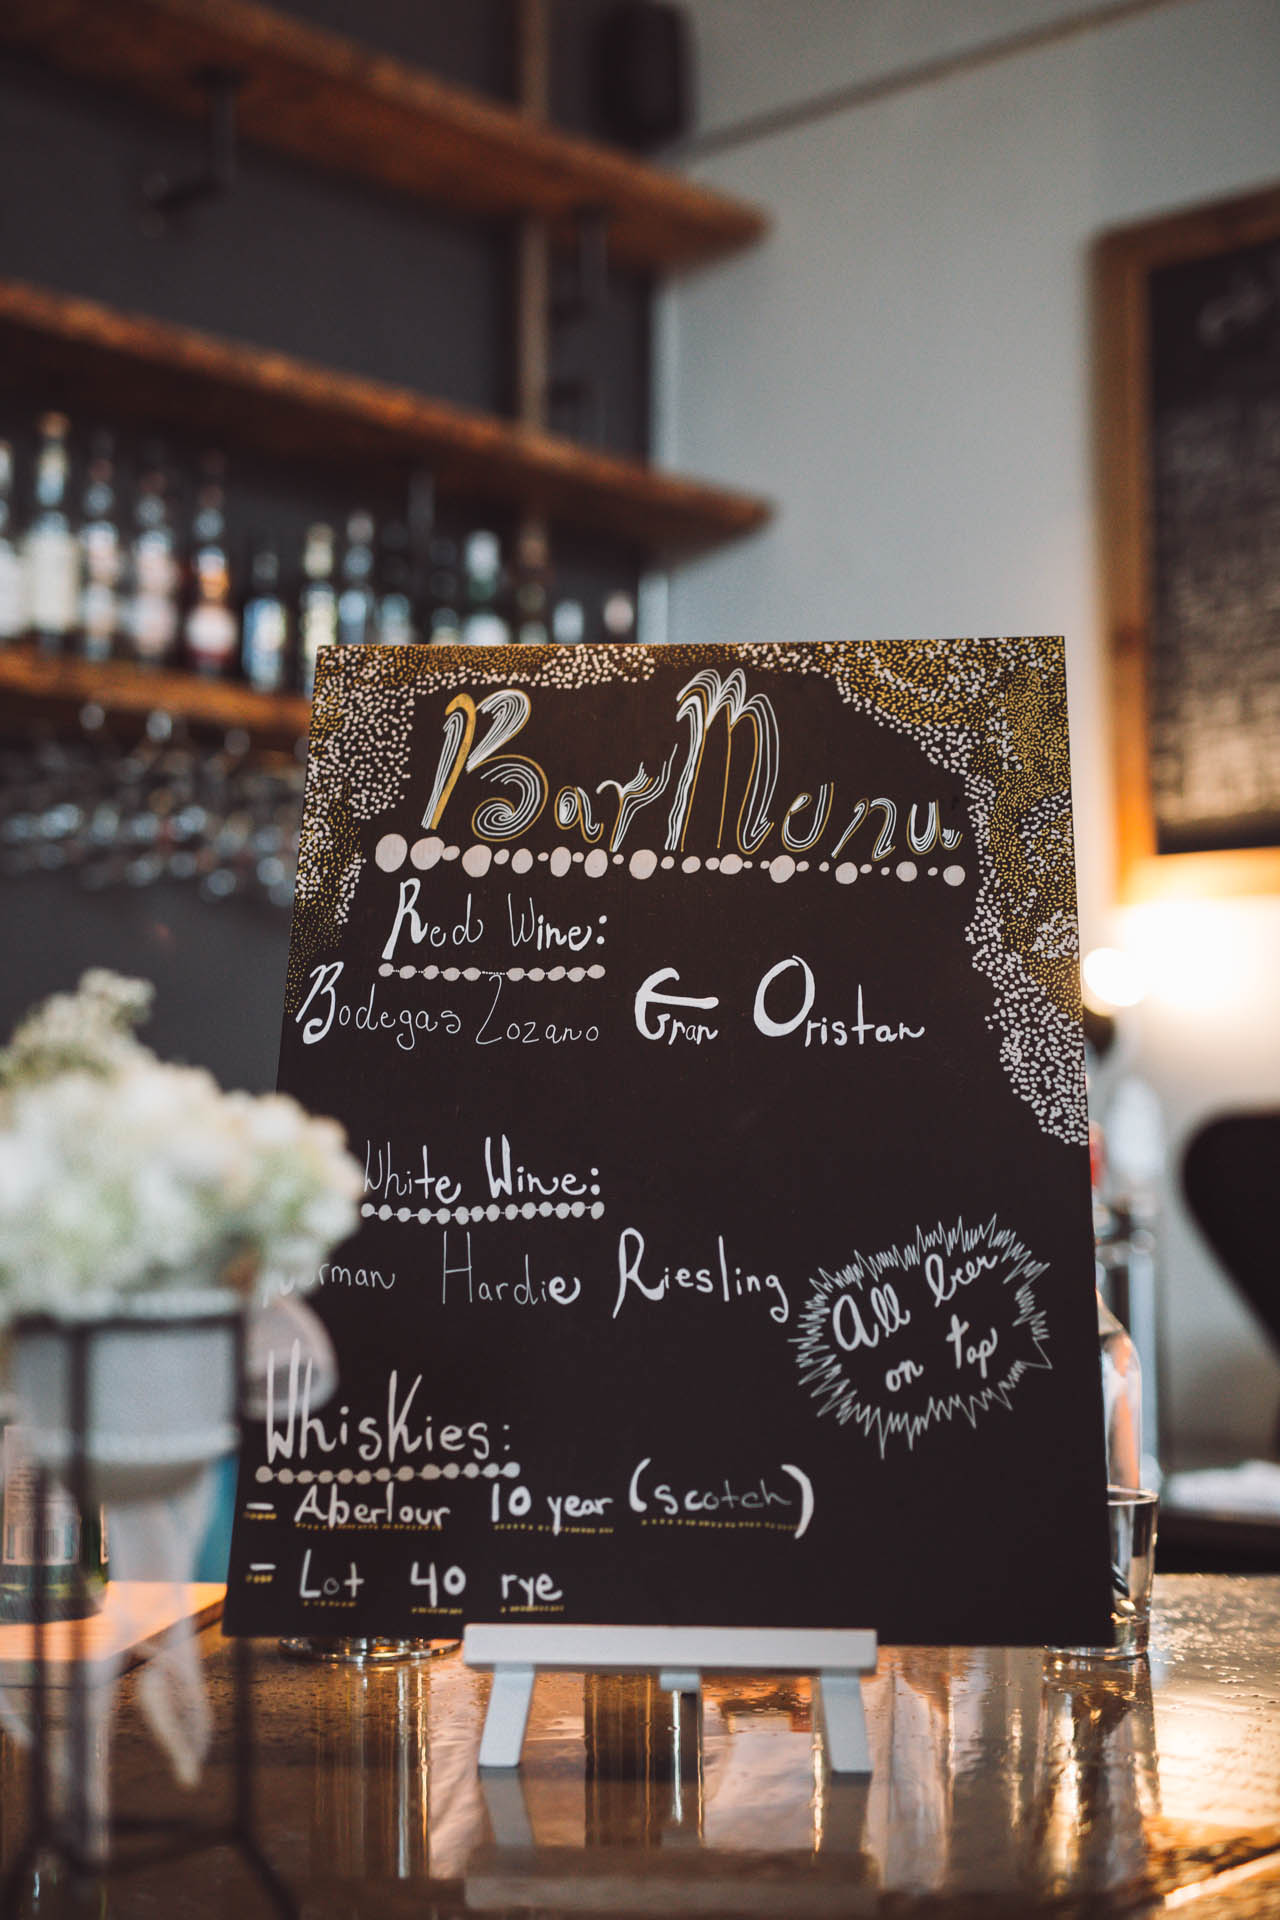 Bar Menu
Red Wine:
Bodegas Lozano Gran Oristan
White Wine:
Norman Hardie Riesling
All beer
on tap
Whiskies:
- Aberlour 10 year (scotch)
- Lot 40 rye